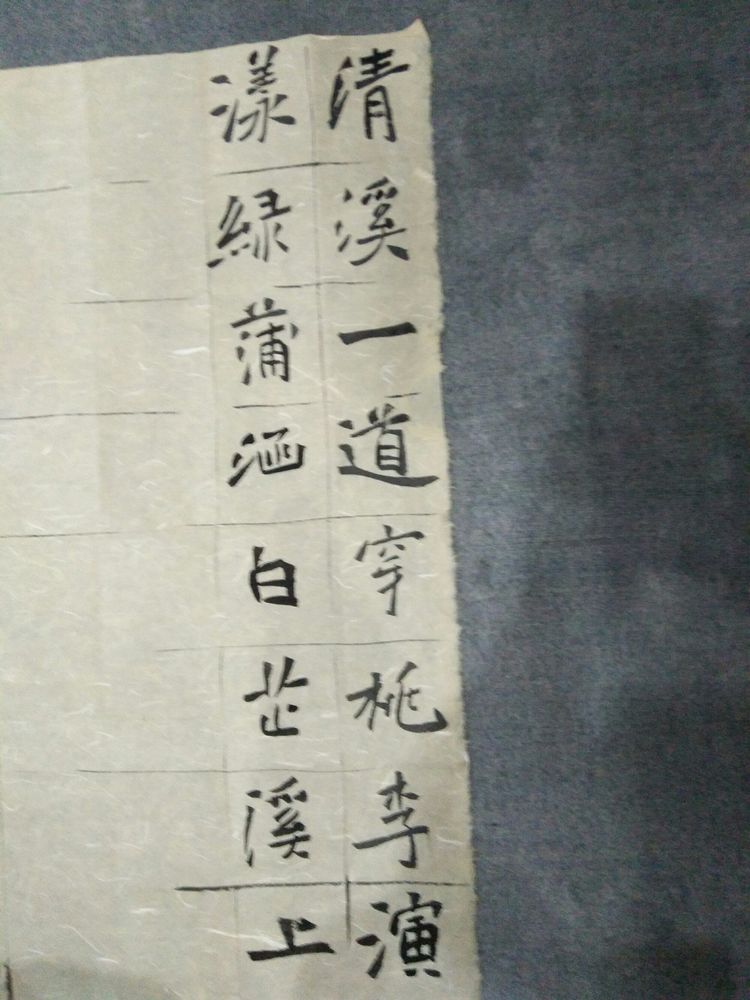 清溪一道穿桃李演
漾綠蒲涵白芷溪上